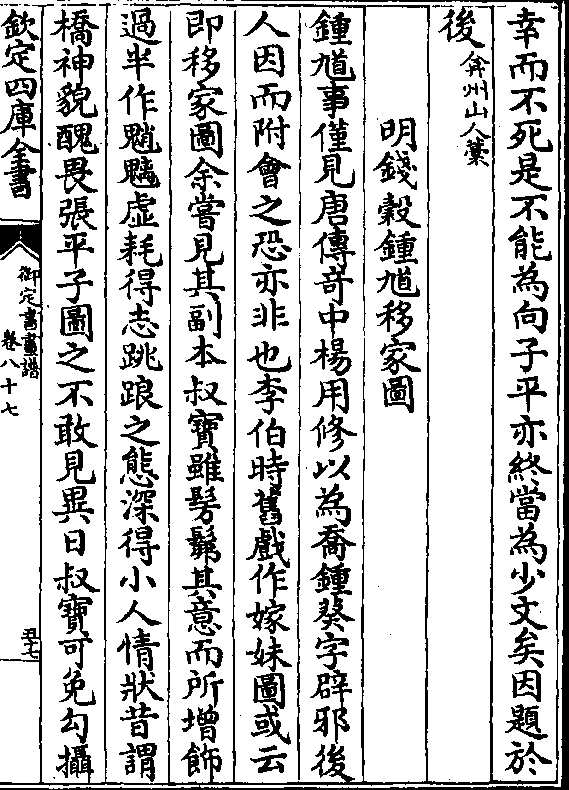 幸而不死是不能為向子平亦終當為少文矣因題於
後弇州山人藁
明錢穀鍾馗移家圖
鍾馗事僅見唐傳竒中楊用修以為喬鍾葵字辟邪後
人因而附會之恐亦非也李伯時舊戲作嫁妹圖或云
即移家圖余嘗見其副本叔寶雖髣髴其意而所增飾
過半作魈魖虛耗得志跳踉之態深得小人情狀昔謂
橋神貌醜畏張平子圖之不敢見異日叔寶可免勾攝
欽定四庫全書
御定書畫譜
卷八十七
五十七